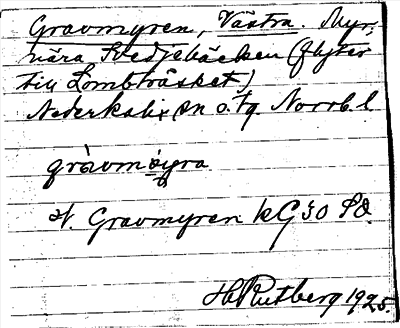 Gravmyren, Västra. Myr,
nära Svedjebäcken (flyter
till Lombträsket)
Nederkalix sn o. tg. Norrb. l.
gràvmỳra
st. Gravmyren kG30 SO.
H Rutberg 1925.